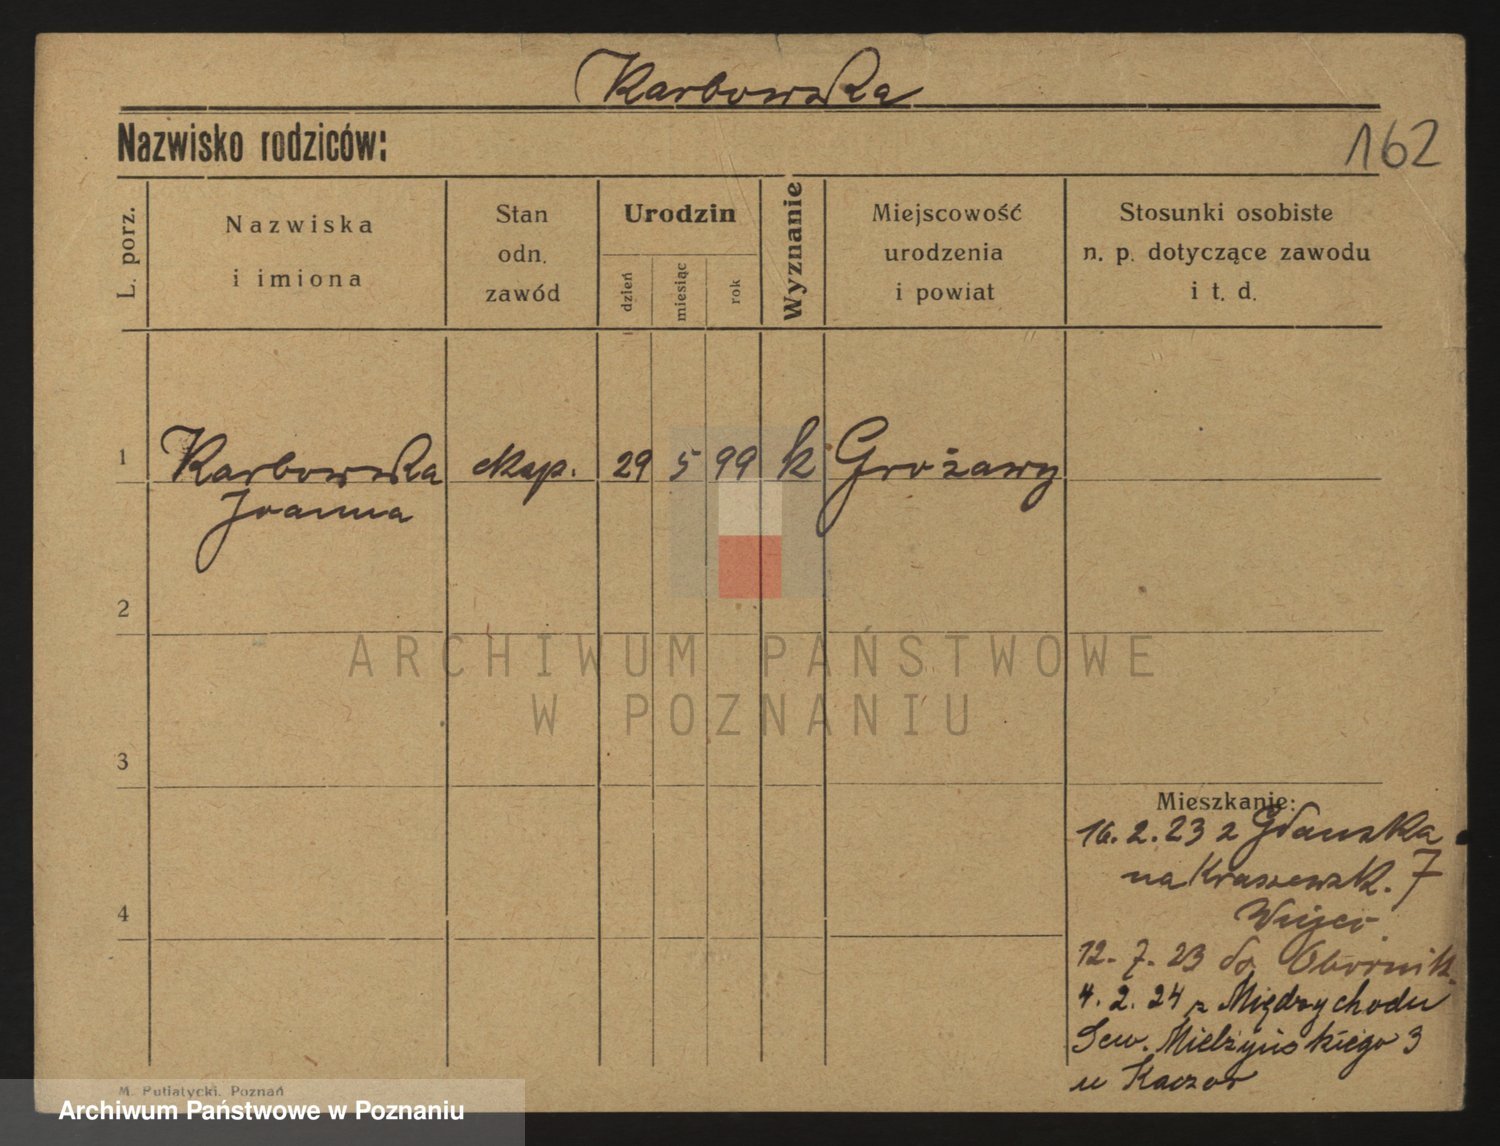 Karbowska
Nazwisko rodziców:
162
L. porz.
Nazwiska
i imiona
Stan
odn.
zawód
Urodzin
dzień
miesiąc
rok
Wyznanie
Miejscowość
urodzenia
i powiat
Stosunki osobiste
n. p. dotyczące zawodu
i t. d.
1
Karbowska
Joanna
29
5
99
k
Grożawy
2
3
4
ARCHIWUM PAŃSTWOWE
W POZNANIU
Mieszkanie:
16.2.23 z Gdańska
na Kraszewsk. 7
12.7.23 do Obornik
4.2.24 z Międzychodu
Sew. Mielżyńskiego 3
u Kaczor
M. Putiatycki, Poznań
Archiwum Państwowe w Poznaniu